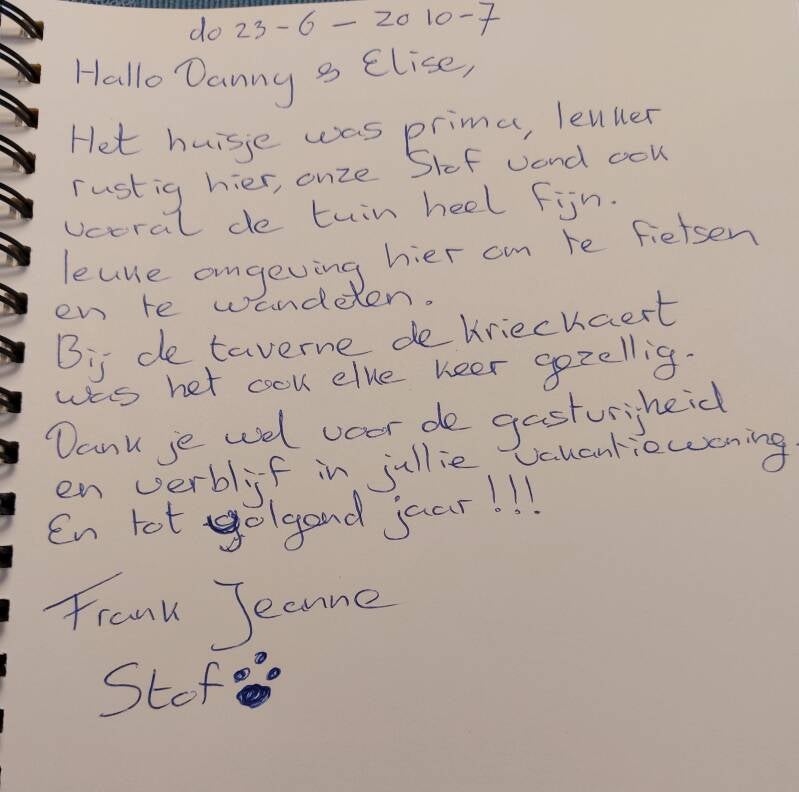 do 23-6 – zo 10-7
Hallo Danny & Elise,
Het huisje was prima, lekker
rustig hier, onze Stof vond ook
vooral de tuin heel fijn.
leuke omgeving hier om te fietsen
en te wandelen.
Bij de taverne de Krieckaert
was het ook elke keer gezellig.
Dank je wel voor de gastvrijheid
en verblijf in jullie vakantiewoning.
En tot volgend jaar!!!
Frank Jeanne
Stof